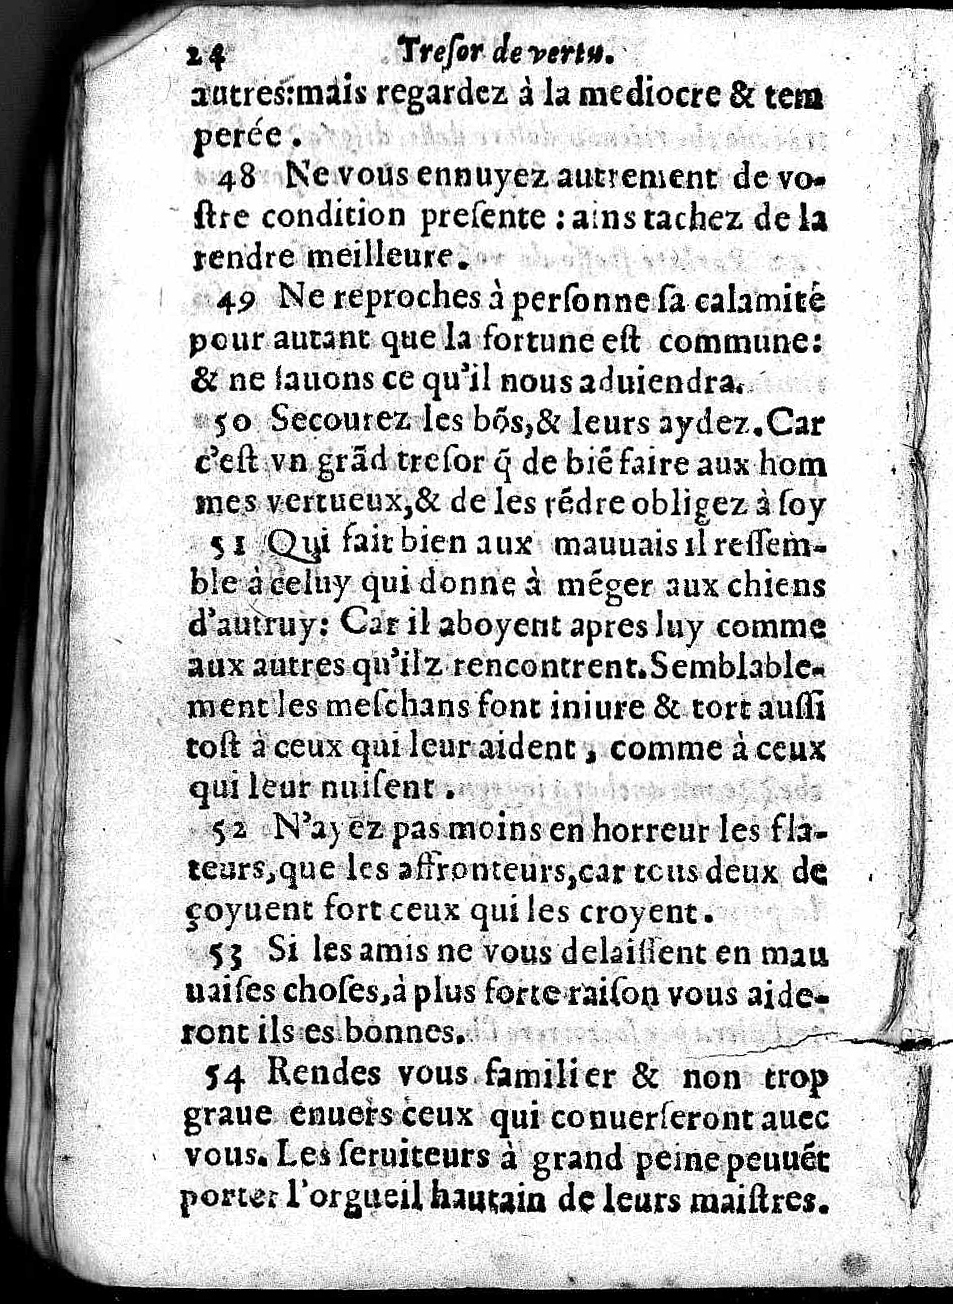 24 Treſor de vertu.
autres:mais regardez à la mediocre & tem
perée.
48 Ne vous ennuyez autrement de vo-
ſtre condition preſente : ains tachez de la
rendre meilleure.
49 Ne reproches à perſonne ſa calamité
pour autant que la fortune eſt commune:
& ne ſauons ce qu'il nous aduiendra.
50 Secourez les bõs,& leurs aydez. Car
c'eſt vn grãd treſor q̃ de biẽ faire aux hom
mes vertueux,& de les rẽdre obligez à ſoy
51 Qui fait bien aux mauuais il reſſem-
ble à celuy qui donne à mẽger aux chiens
d'autruy: Car il aboyent apres luy comme
aux autres qu'ilz rencontrent. Semblable-
ment les meſchans font iniure & tort auſſi
toſt à ceux qui leur aident, comme à ceux
qui leur nuiſent.
52 N'ayez pas moins en horreur les fla-
teurs,que les affronteurs,car tous deux de
çoyuent fort ceux qui les croyent.
53 Si les amis ne vous delaiſſent en mau
uaiſes choſes,à plus forte raiſon vous aide-
ront ils es bonnes.
54 Rendes vous familier & non trop
graue enuers ceux qui conuerſeront auec
vous. Les ſeruiteurs à grand peine peuuẽt
porter l'orgueil hautain de leurs maiſtres.